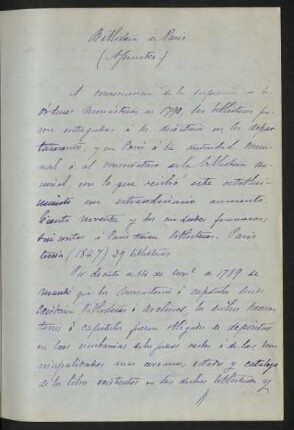 Bibliotecas en Paris
(Apuntes.)
A consecuencia de la supresion de las
órdenes monásticas en 1790, las bibliotecas fue-
ron entregadas á los directorios en los depar-
tamentos, y en Paris á la autoridad comu-
nal ó al conservatorio de la biblioteca na-
cional, con lo que recibió este estableci-
miento un extraordinario aumento
Ciento noventa y dos ciudades francesas,
sin contar á Paris tienen bibliotecas. Paris
tenia (1847) 39 bibliotecas
Por decreto de 14 de novbe. de 1789 se
mandó que los monasterios ó capitulos donde
existieran bibliotecas ó archivos, los dichos monas-
terios ó capitulos fueran obligados á depositar
en las escribanias de los jueces reales ó de las
municipalidades mas cercanas, estados y catálogos
de los libros existentes en las dichas bibliotecas y